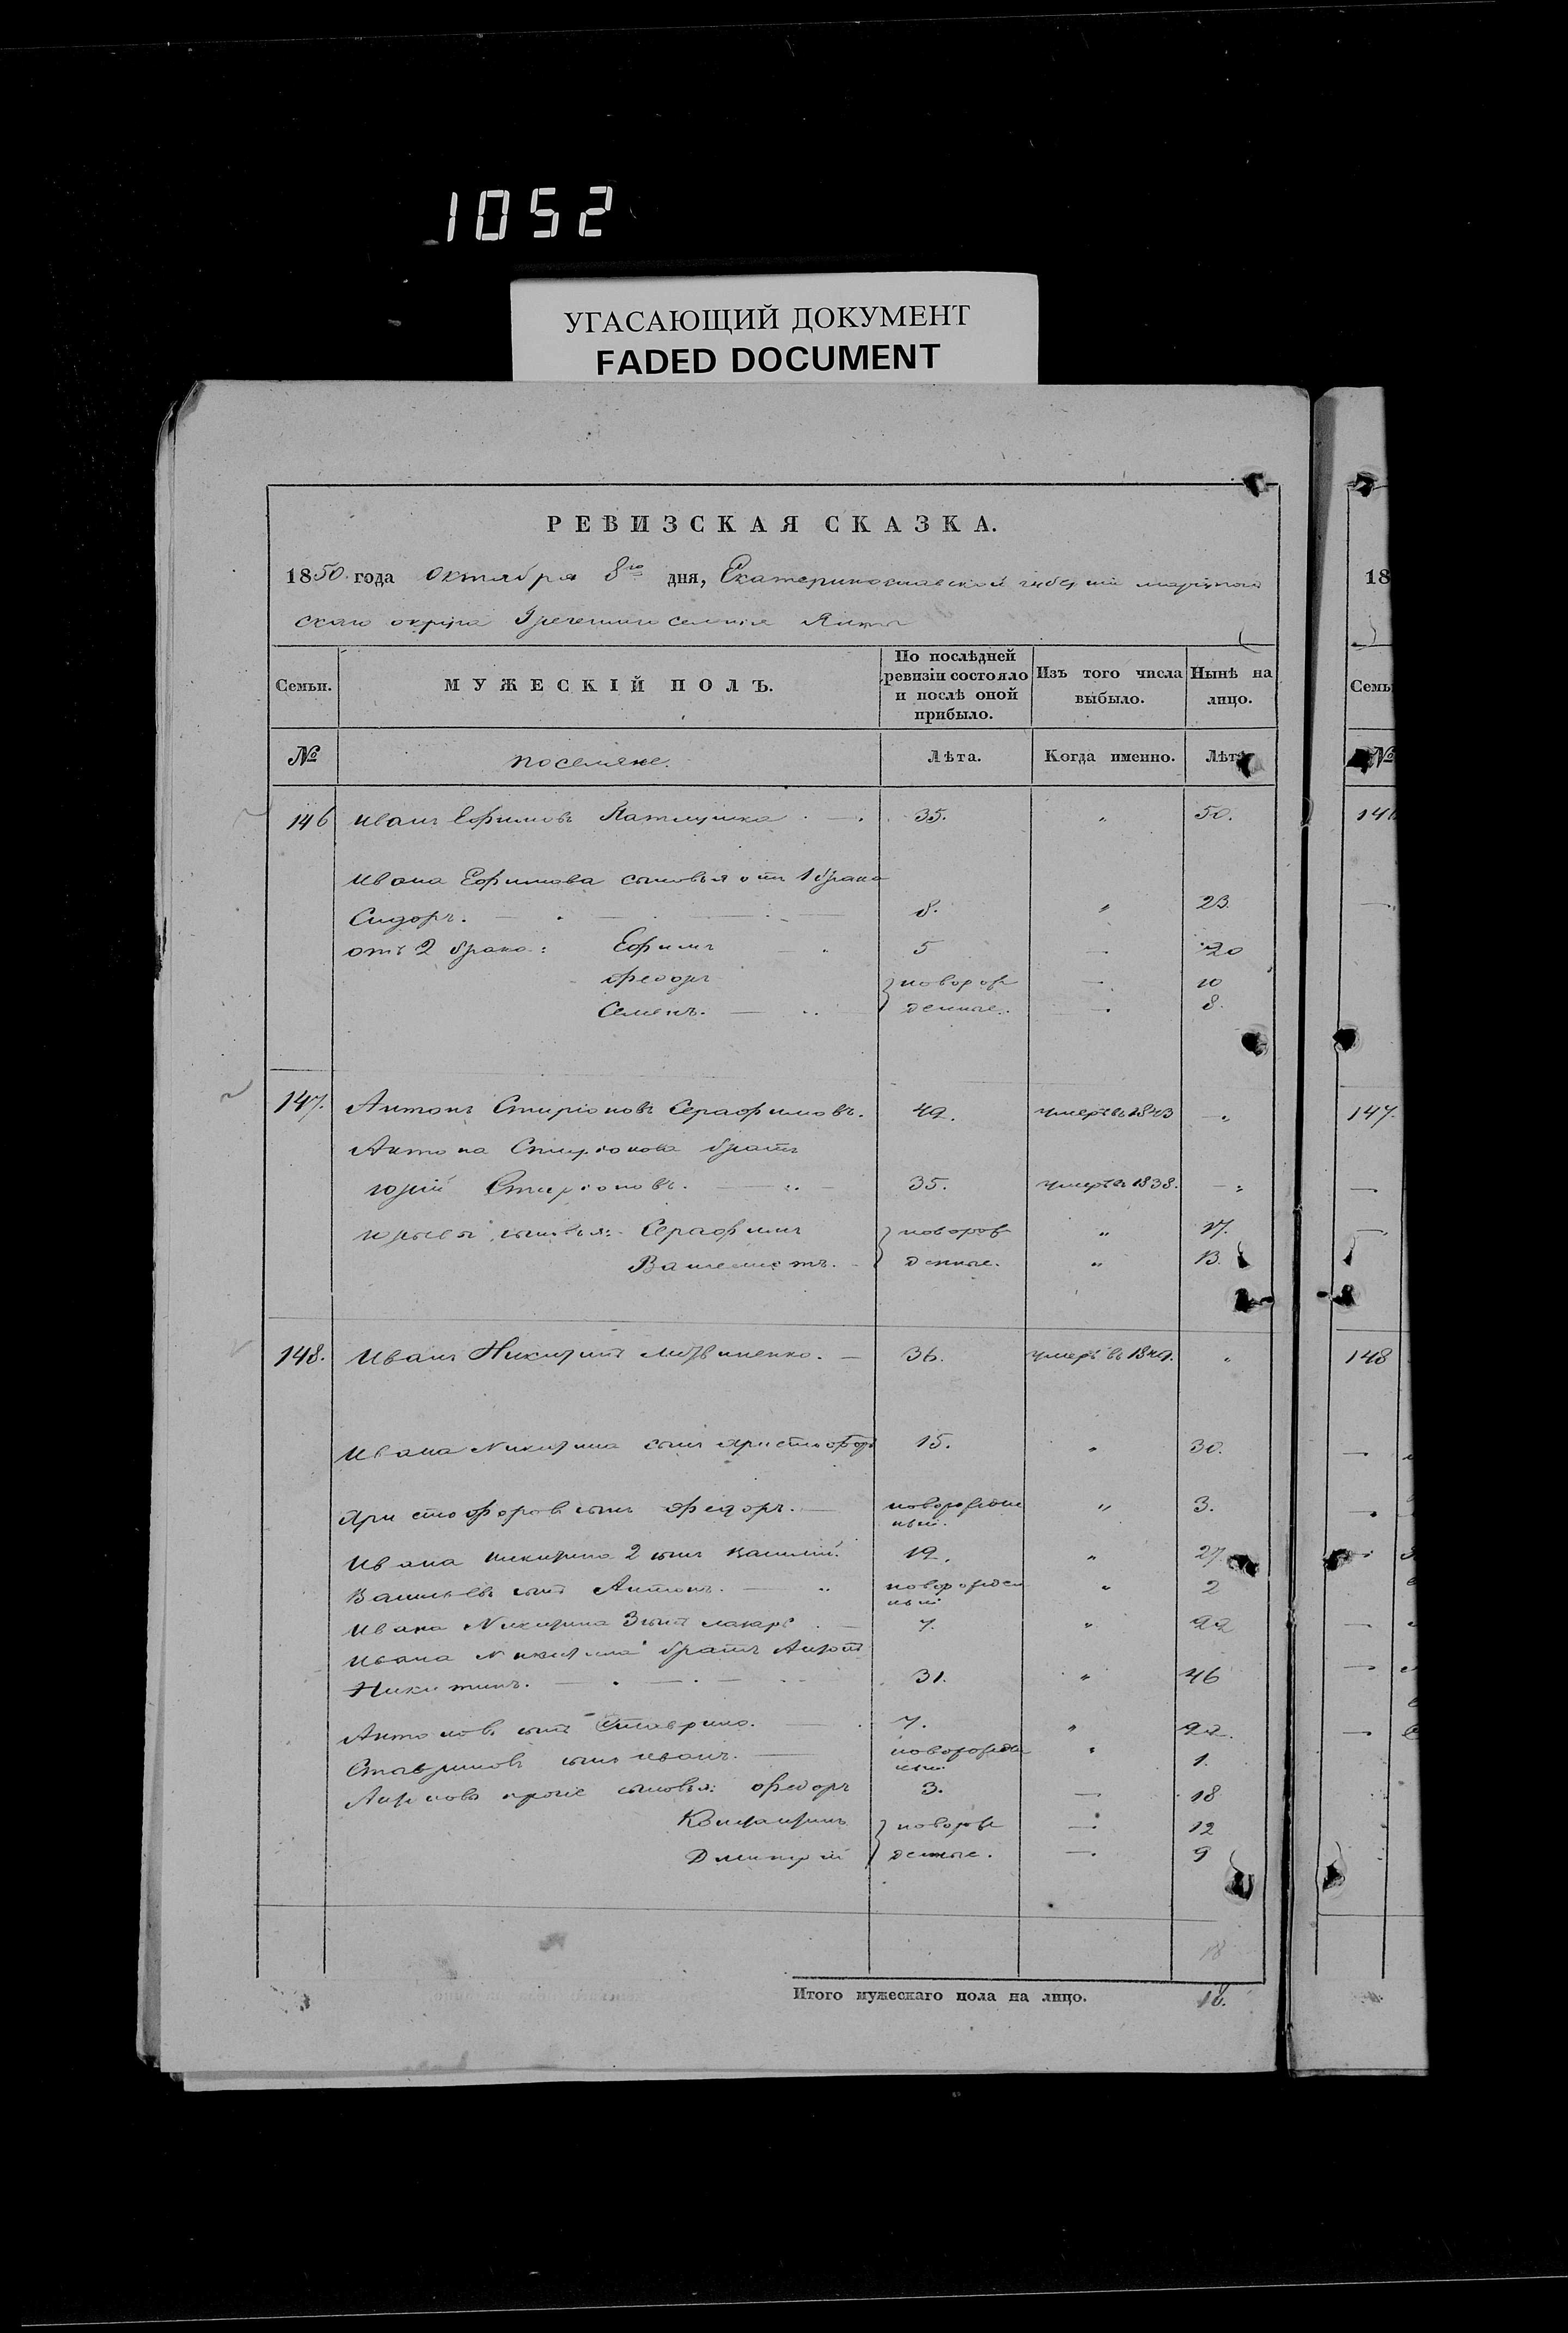 1052
УГАСАЮЩИЙ ДОКУМЕНТ
FADED DOCUMENT
РЕВИЗСКАЯ СКАЗКА.
1850 года Октября 8го дня, Екатеринославской губерніи маріуполь
скаго округа Греческаго селенія Ялты
Семьи. МУЖЕСКІЙ ПОЛЪ. По послѣдней ревизіи состояло и послѣ оной прибыло. Изъ того числа выбыло. Нынѣ на лицо.
№ поселяне. Лѣта. Когда именно. Лѣта
146 Иванъ Ефимовъ 35. „ 50.
Ивана Ефимова сыновья отъ 1 брака
Сидоръ. 8. „ 23.
отъ 2 брака: Ефимъ 5 — 20
Федоръ новорож — 10
Семенъ. денные. — 8.
147. Антонъ Спиріоновъ Серафимовъ. 49. умеръ въ 1843 — „
Антона Спиріонова братъ
Юрій Спиріоновъ. 35. умеръ въ 1838. — „
Юрьевы сыновья: Серафимъ новорож „ 17.
денные. „ 13.
148. Иванъ Никитинъ 36. умеръ въ 1849. „
Ивана Никитина сынъ Христофоръ 15. „ 30.
Христофоровъ сынъ Федоръ. новорожден
ный. „ 3.
Ивана Никитина 2 сынъ Василій. 12. „ 27.
Васильевъ сынъ Антонъ. новорожден
ный „ 2
Ивана Никитина 3 сынъ Макаръ 7. „ 22
Ивана Никитина братъ Антонъ
Никитинъ. 31. „ 46
Антоновъ сынъ Ставрино. 7. „ 22.
Ставриновъ сынъ Иванъ. новорожден
ный. „ 1.
Антоновы прочіе сыновья: Федоръ 3. — 18
Константинъ новорож — 12
Дмитрій денные. — 9
18
Итого мужескаго пола на лицо. 18.
18
Семь
№
146
147.
148